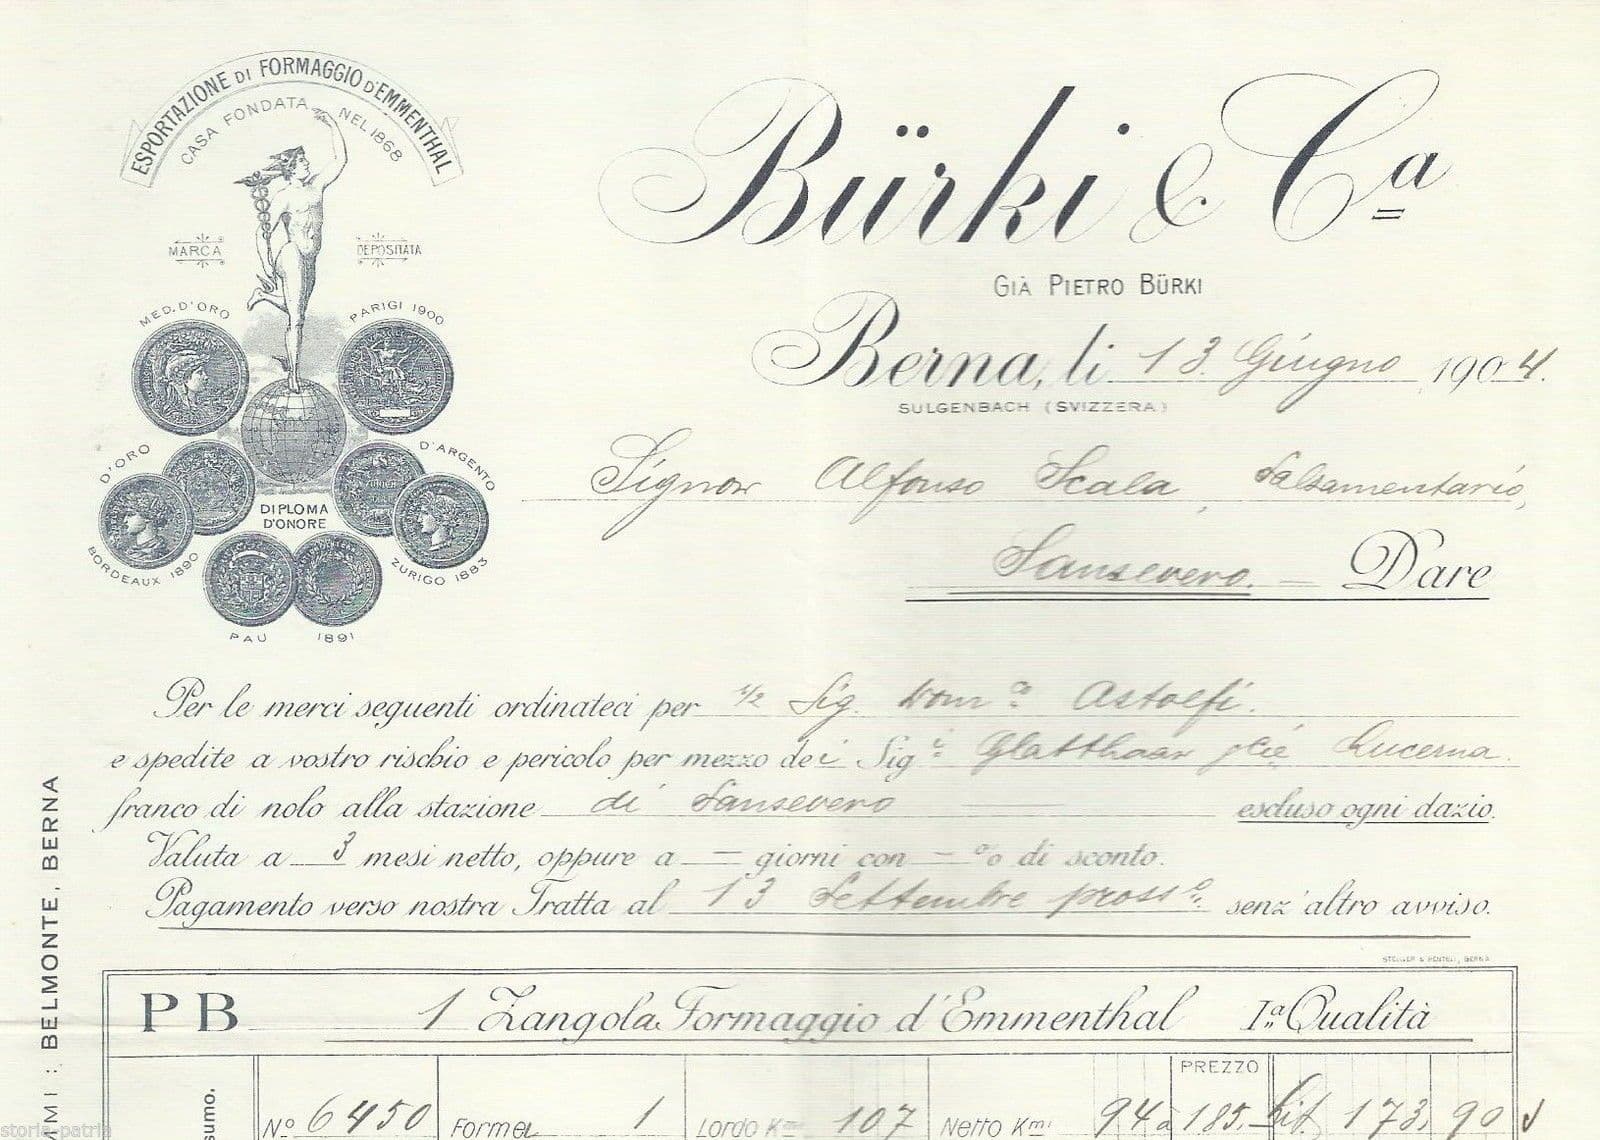 ESPORTAZIONE DI FORMAGGIO D'EMMENTHAL
CASA FONDATA NEL 1868
MARCA DEPOSITATA
MED. D'ORO PARIGI 1900
D'ORO D'ARGENTO
DIPLOMA
D'ONORE
BORDEAUX 1890 ZURIGO 1883
PAU 1891
Bürki & Ca
GIÀ PIETRO BÜRKI
Berna, li 13 Giugno 1904.
SULGENBACH (SVIZZERA)
Signor Alfonso Scala, Salsamentario,
Sansevero. – Dare
Per le merci seguenti ordinateci per 1/2 Sig. Astolfi.
e spedite a vostro rischio e pericolo per mezzo dei Sigi Glatthaar Lucerna.
franco di nolo alla stazione di Sansevero escluso ogni dazio.
Valuta a 3 mesi netto, oppure a – giorni con – % di sconto.
Pagamento verso nostra Tratta al 13 Settembre prosso. senz' altro avviso.
BERNA
PB 1 Zangola Formaggio d'Emmenthal Ia Qualità
PREZZO
No 6450 Forme 1 Lordo Kmi 107 Netto Kmi 94 a 185.- Lit. 173,90
MI : BELMONTE, BERNA
sumo.
storia-patria